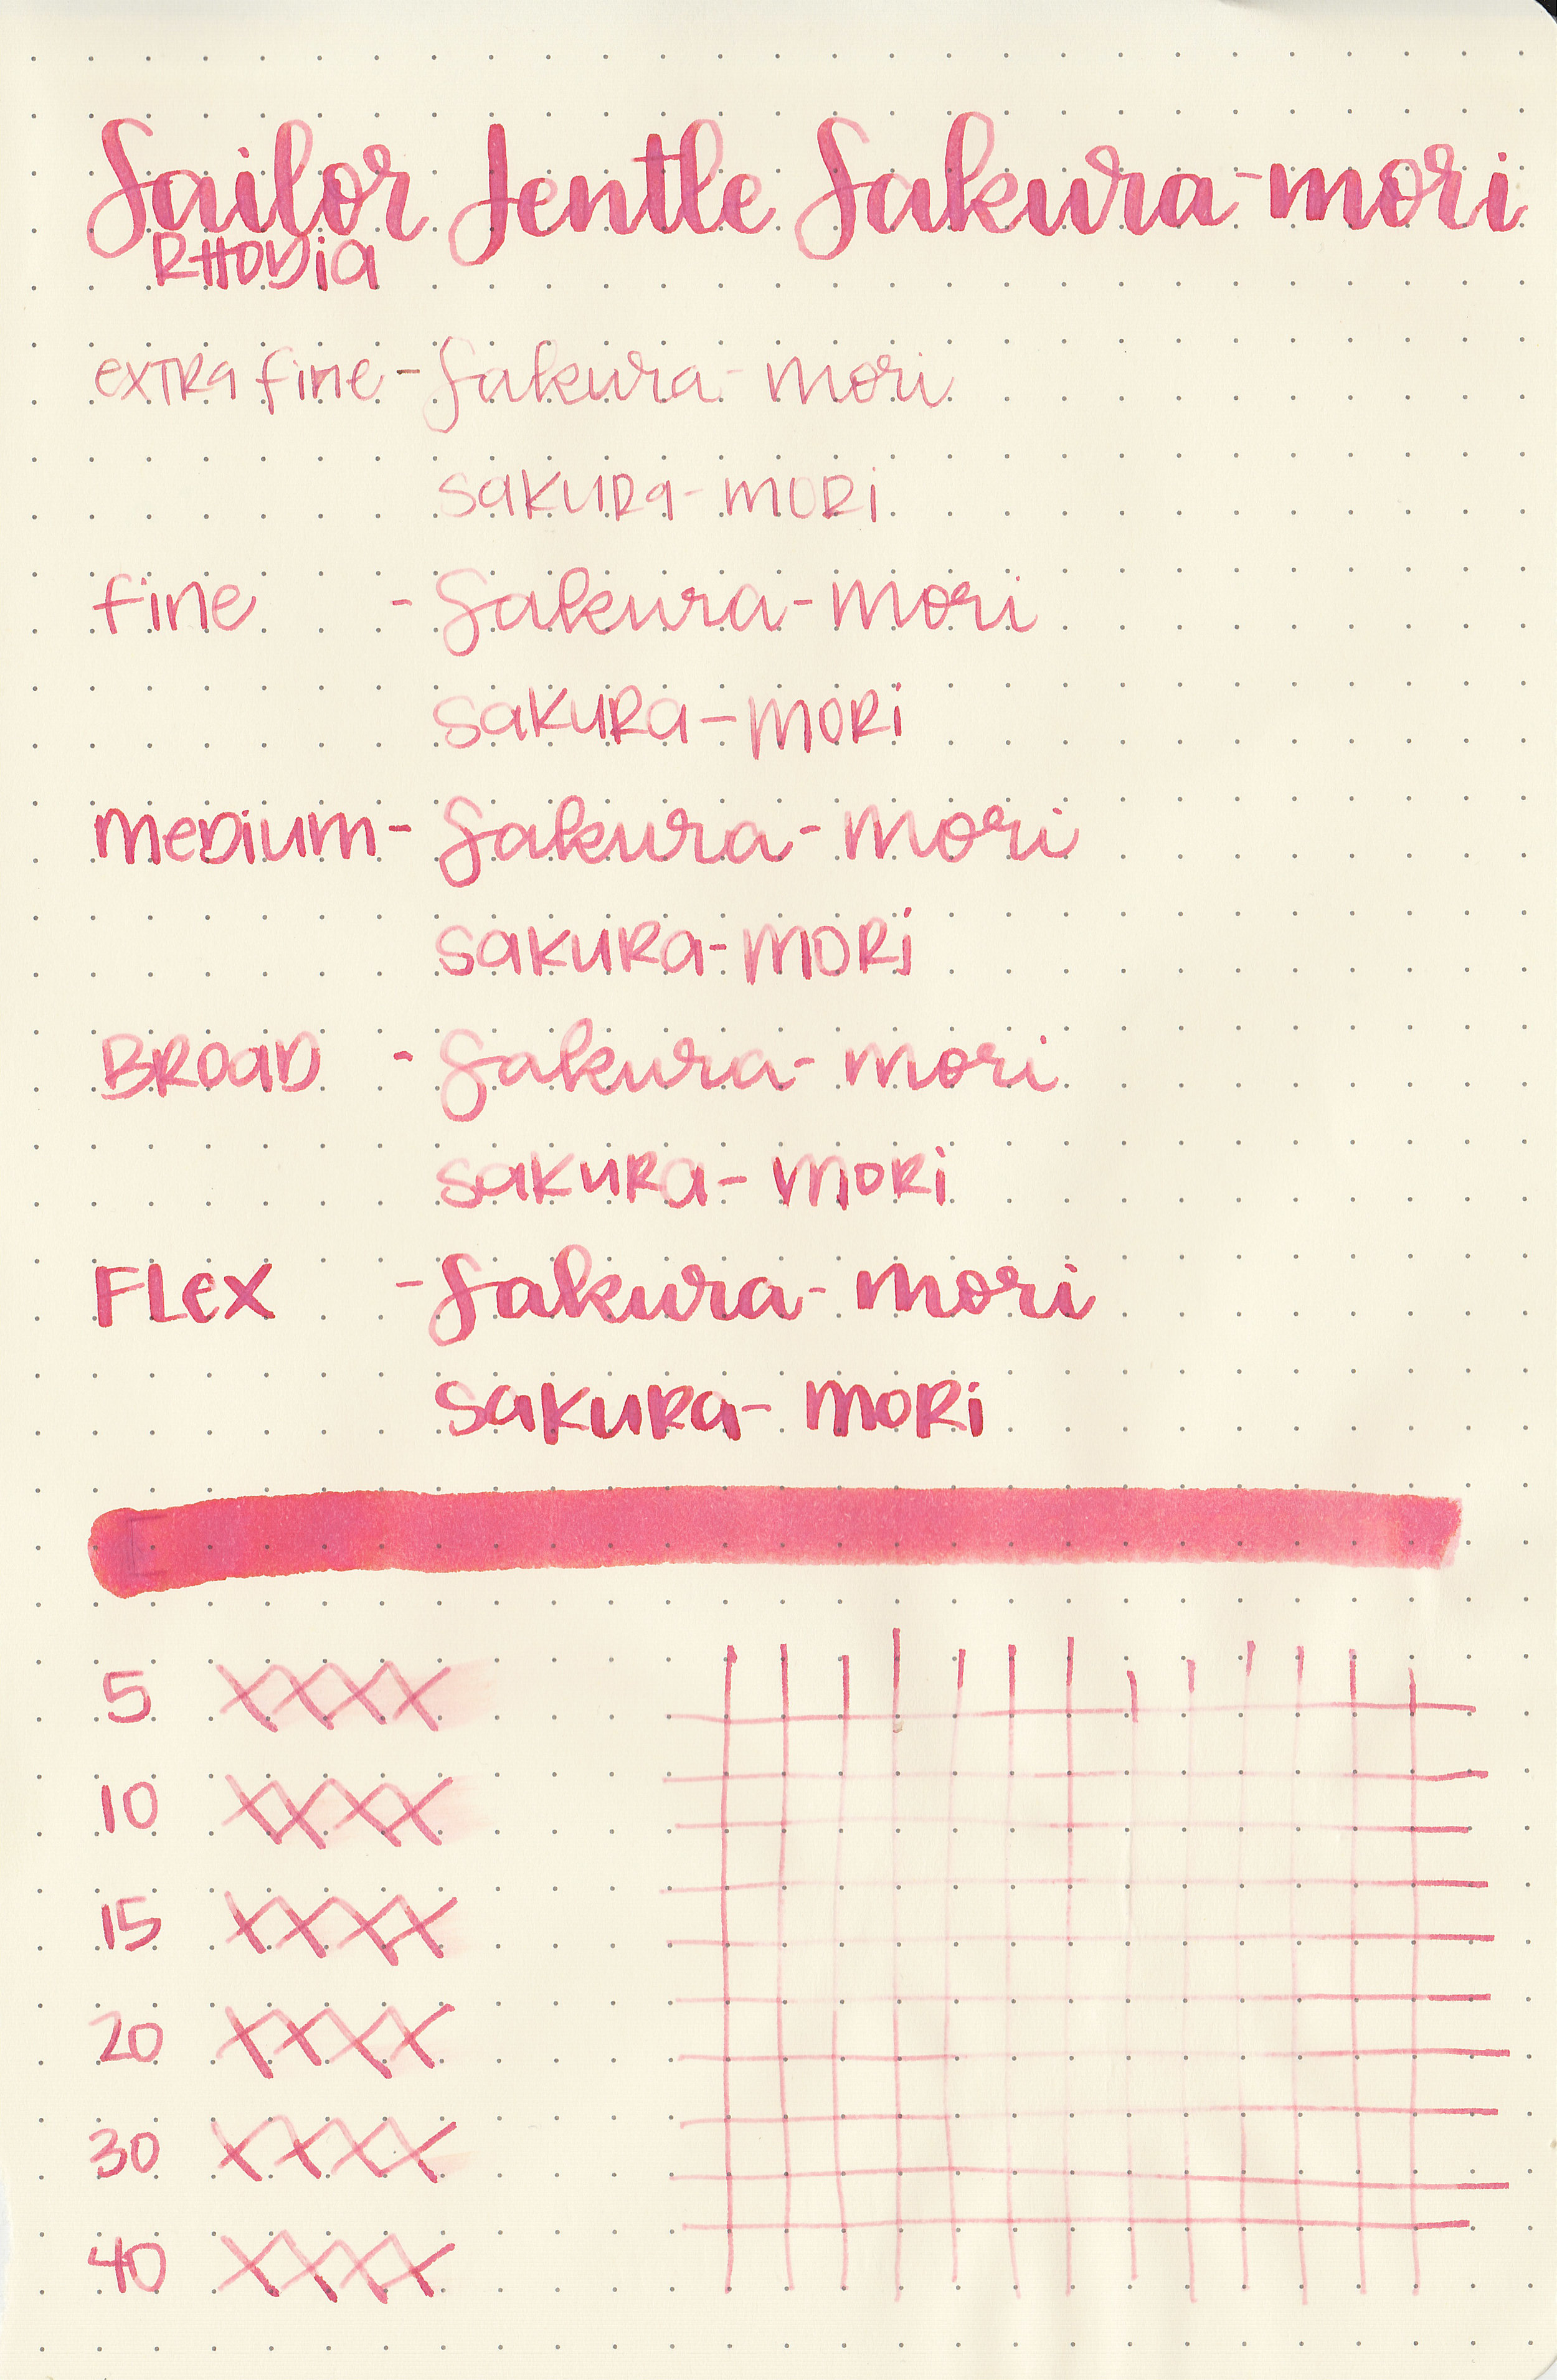 Sailor Jentle Sakura-mori
RHODia
eXTRa fine - Sakura-mori
saKURa-MORi
fine - Sakura-mori
saKURa-MORi
MeDiUM - Sakura-mori
saKURa-MORi
BROaD - Sakura-mori
saKURa-MORi
FLeX - Sakura-mori
saKURa-MORi
5 XXXX
10 XXXX
15 XXXX
20 XXXX
30 XXXX
40 XXXX